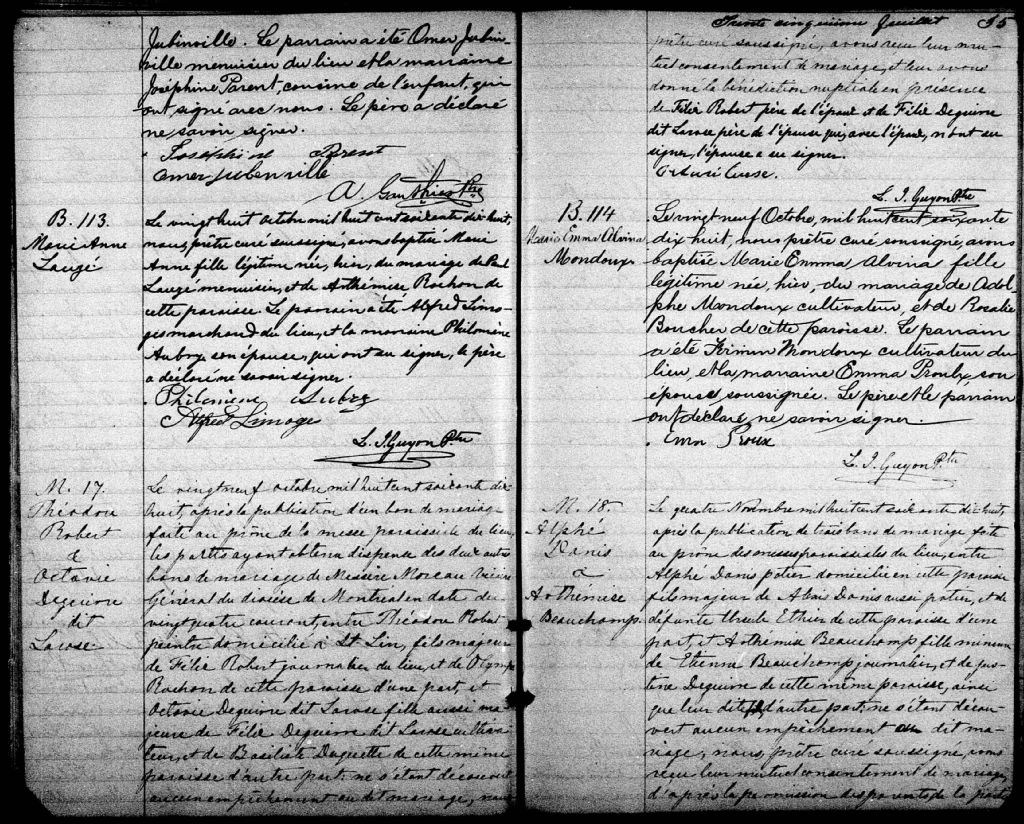 Jubinville. Le parrain a été Omer Jubin-
ville menuisier du lieu et la marraine
Joséphine Parent, cousine de l'enfant, qui
ont signé avec nous. Le père a déclaré
ne savoir signer.
Josephine Parent
Omer Jubenville
A. Gauthier Ptre
B. 113.
Marie Anne
Laugé
Le vingt huit octobre mil huit cent soixante dix huit
nous, prêtre curé soussigné, avons baptisé Marie
Anne fille légitime née, hier, du mariage de Paul
Laugé menuisier, et de Arthémise Rochon de
cette paroisse. Le parrain a été Alfred Limo-
ges marchand du lieu, et la marraine Philomène
Aubry son épouse, qui ont su signer, le père
a déclaré ne savoir signer.
Philomene Aubry
Alfred Limoge
L. J. Guyon Ptre
M. 17.
Théodore
Robert
&
Octavie
Deguire
dit
Larose
Le vingt neuf octobre mil huit cent soixante dix
huit, après la publication d'un ban de mariage
faite au prône de la messe paroissiale du lieu,
les parties ayant obtenu dispense des deux autres
bans de mariage de Messire Moreau Vicaire
Général du diocèse de Montréal en date du
vingt quatre courant entre Théodore Robert
peintre domicilié à St Lin, fils majeur
de Félix Robert journalier du lieu, et de Olympe
Rochon de cette paroisse d'une part, et
Octavie Deguire dit Larose fille aussi ma-
jeure de Félix Deguire dit Larose cultiva-
teur, et de Basilisse Duquette de cette même
paroisse d'autre part; ne s'étant découvert
aucun empêchement au dit mariage, nous
Trente cinquième feuillet 35
prêtre curé soussigné, avons reçu leur mu-
tuel consentement de mariage, et leur avons
donné la bénédiction nuptiale en présence
de Félix Robert père de l'époux et de Félix Deguire
dit Larose père de l'épouse qui, avec l'époux, n'ont su
signer, l'épouse a su signer.
L. J. Guyon Ptre
B. 114
Marie Emma Alvina
Mondoux
Le vingt neuf Octobre, mil huit cent soixante
dix huit, nous prêtre curé soussigné, avons
baptisé Marie Emma Alvina fille
légitime née, hier, du mariage de Adol-
phe Mondoux cultivateur, et de Rosalie
Boucher de cette paroisse. Le parrain
a été Firmin Mondoux cultivateur du
lieu, et la marraine Emma Proulx, son
épouse soussignée. Le père et le parrain
ont déclaré ne savoir signer.
Ema Proux
L. J. Guyon Ptre
M. 18.
Alphé
Danis
&
Arthémise
Beauchamp.
Le quatre Novembre mil huit cent soixante dix huit,
après la publication de trois bans de mariage faite
au prône des messes paroissiales du lieu, entre
Alphé Danis potier domicilié en cette paroisse
fils majeur de Alexis Danis aussi potier, et de
défunte Ursule Ethier de cette paroisse d'une
part, et Arthémise Beauchamp fille mineure
de Etienne Beauchamp journalier, et de Jus-
tine Deguire de cette même paroisse, ainsi
que leur dite d'autre part; ne s'étant décou-
vert aucun empêchement au dit ma-
riage, nous, prêtre curé soussigné, avons
reçu leur mutuel consentement de mariage,
d'après la permission des parents de la partie